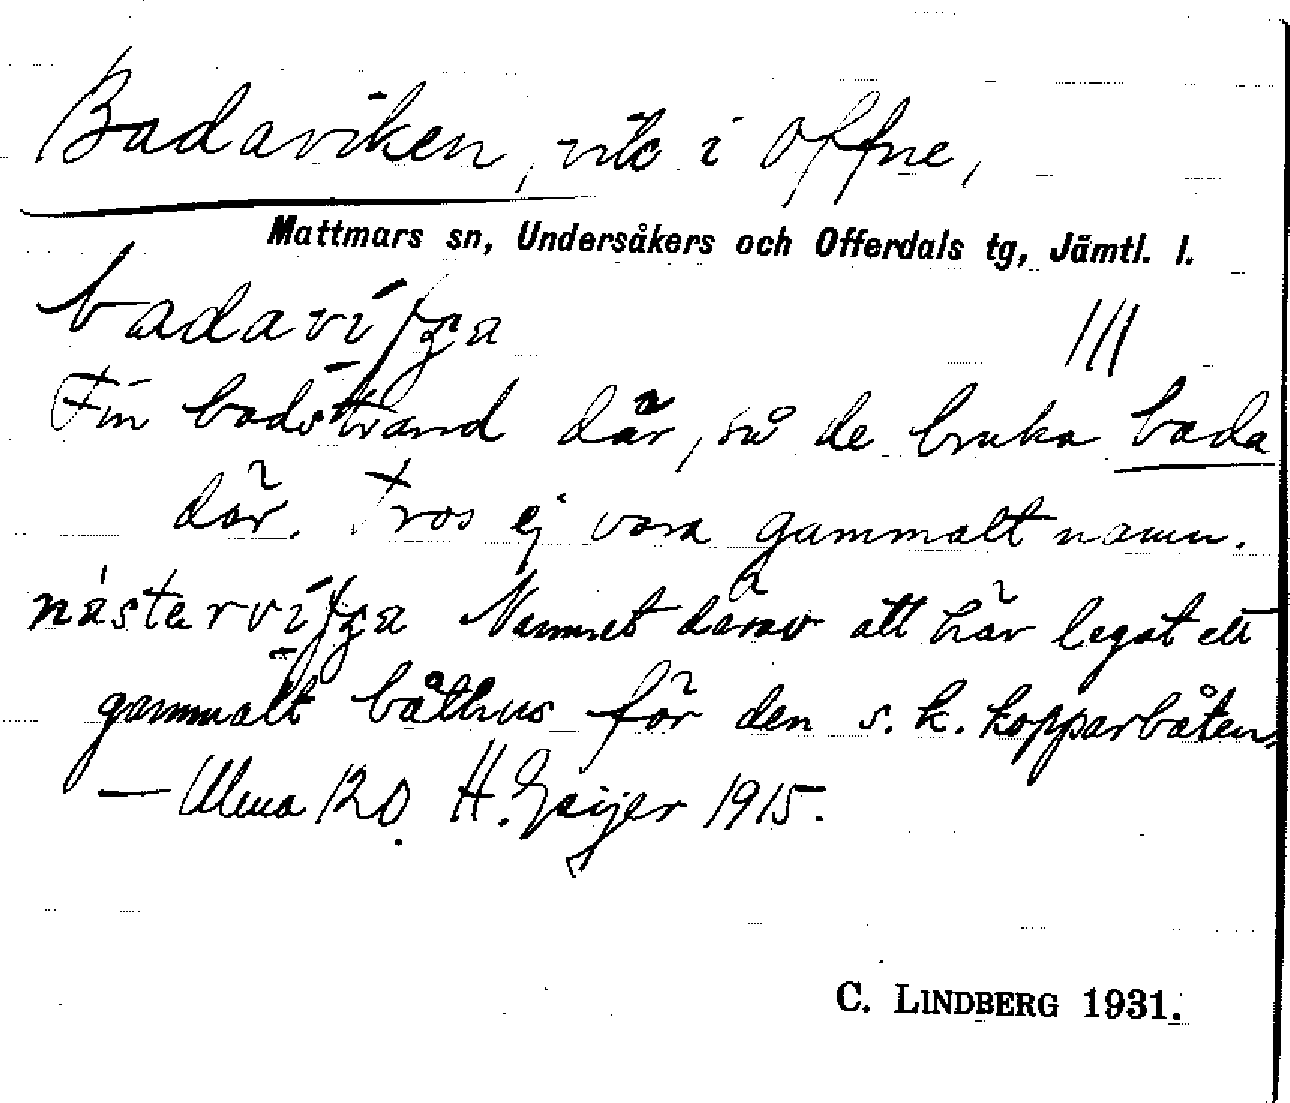 Badaviken, vik i Offne,
Mattmars sn, Undersåkers och Offerdals tg, Jämtl. l.
badaviʃʒa III
Fin badstrand där, så de bruka bada
där. Tros ej vara gammalt namn.
nåsterviʃʒa Namnet därav att här legat ett
gammalt båthus för den s. k. kopparbåten,
— Ulma 120. H. Geijer 1915.
C. LINDBERG 1931.